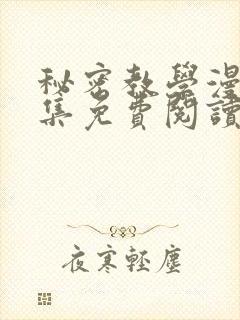 秘密教學漫
集免費閱讀
夜寒輕塵